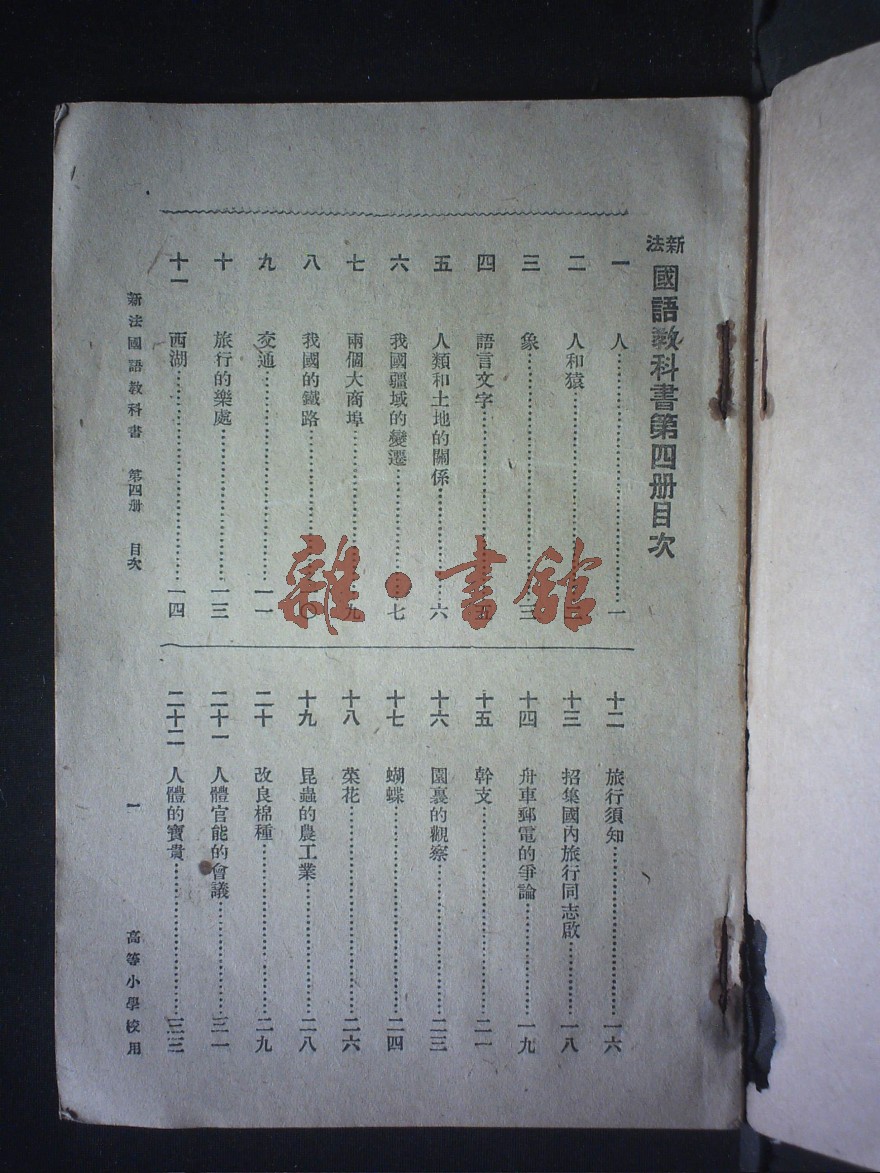 新法國語教科書第四册目次
一 人…………一
二 人和猿…………
三 象…………三
四 語言文字…………五
五 人類和土地的關係…………六
六 我國疆域的變遷…………七
七 兩個大商埠…………九
八 我國的鐵路…………一〇
九 交通…………一一
十 旅行的樂處…………一三
十一 西湖…………一四
十二 旅行須知…………一六
十三 招集國內旅行同志啟…………一八
十四 舟車郵電的爭論…………一九
十五 幹支…………二一
十六 園裏的觀察…………二三
十七 蝴蝶…………二四
十八 菜花…………二六
十九 昆蟲的農工業…………二八
二十 改良棉種…………二九
二十一 人體官能的會議…………三一
二十二 人體的寶貴…………三三
新法國語教科書 第四册 目次 一 高等小學校用
雜·書館